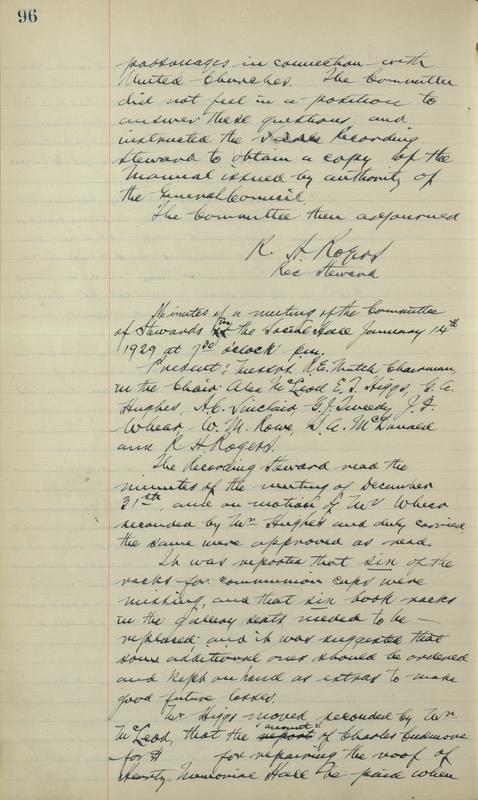 96
parsonages in connection with
United Churches. The Committee
did not feel in a position to
answer these questions, and
instructed the Recording
Steward to obtain a copy of the
Manual issued by authority of
the General Council.
The Committee then adjourned
R. H. Rogers
Rec Steward
Minutes of a meeting of the Committee
of Stewards in the Social Hall January 14th
1929 at 7.30 o'clock p.m.
Present; Messrs R.E. Mutch Chairman,
in the Chair Alex McLeod E. T. Higgs, G. A.
Hughes, A.C. Sinclair G.J. Tweedy J. J.
Whear W. M. Rowe, D. A. McDonald
and R H. Rogers.
The Recording Steward read the
minutes of the meeting of December
31st, and on motion of Mr Whear
seconded by Mr Hughes and duly carried,
the same were approved as read.
It was reported that six of the
racks for communion cups were
missing, and that six book racks
in the gallery seats needed to be
replaced and it was suggested that
some additional ones should be ordered
and kept on hand as extras to make
good future losses.
Mr Higgs moved, seconded by Mr
McLeod, that the report account of Charles
for $ for repairing the roof of
Memorial Hall be paid when